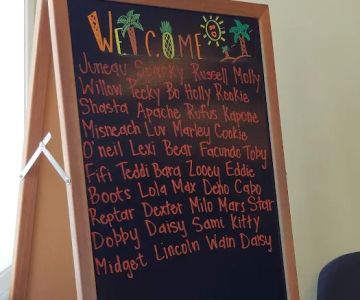 WELCOME
Juneau Spanky Russell Molly
Willow Pecky Bo Holly Rookie
Shasta Apache Rufus Kapone
Misneach Luv Marley Cookie
O'neil Lexi Bear Facundo Toby
Fifi Teddi Bara Zooey Eddie
Boots Lola Max Deho Cabo
Reptar Dexter Milo Mars Star
Dobby Daisy Sami Kitty
Midget Lincoln Wain Daisy